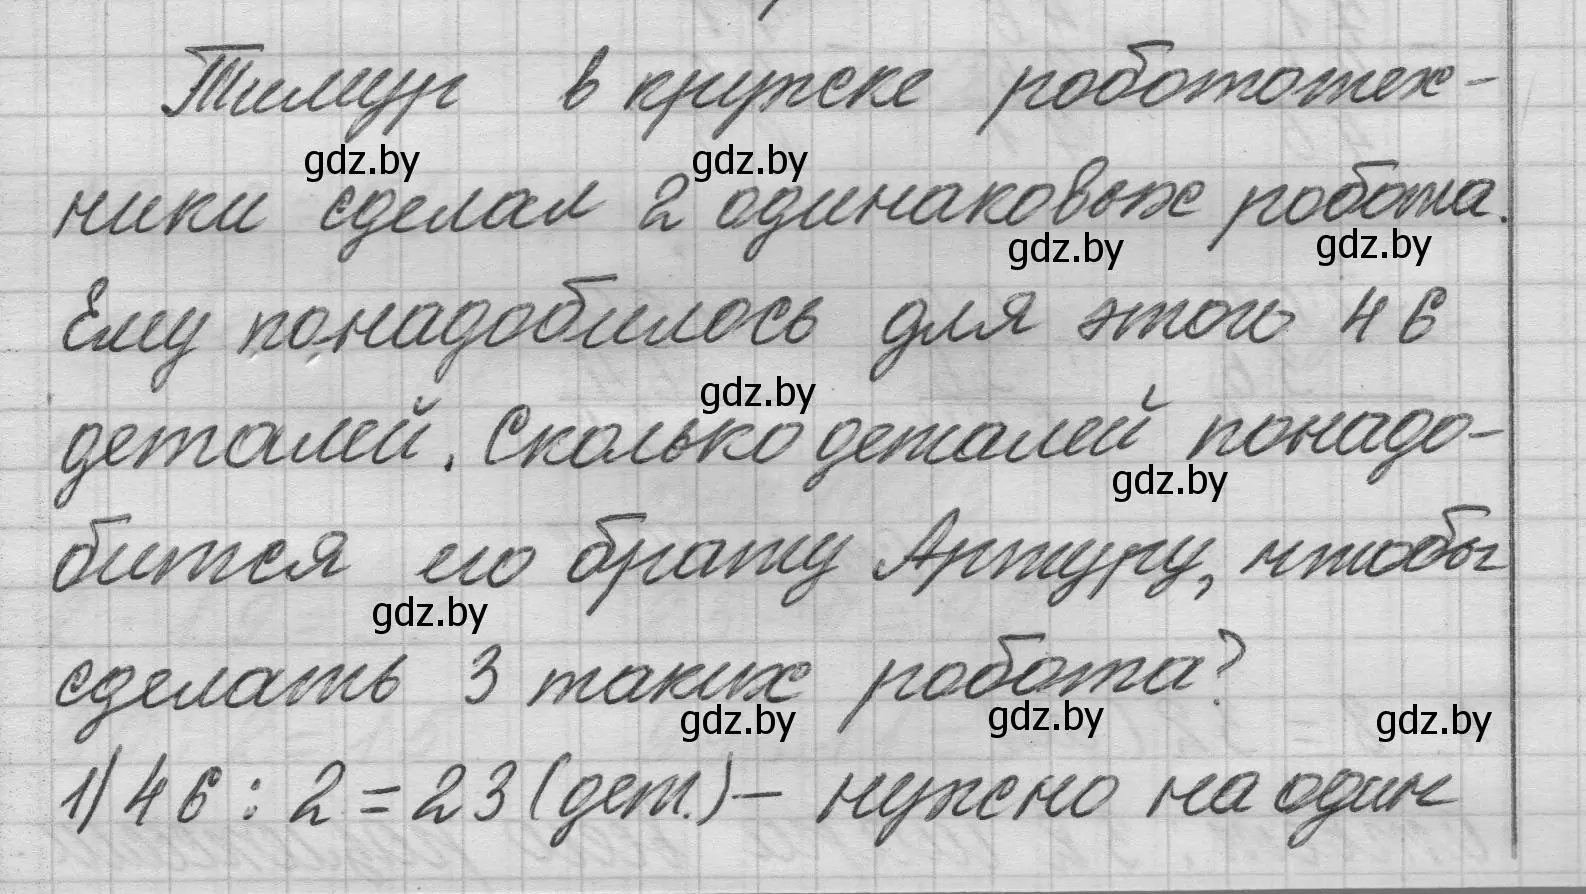 Тимур в кружке робототех-
ники сделал 2 одинаковых робота.
Ему понадобилось для этого 46
деталей. Сколько деталей понадо-
бится его брату Артуру, чтобы
сделать 3 таких робота?
1) 46 : 2 = 23 (дет.) – нужно на один
gdz.by
gdz.by
gdz.by
gdz.by
gdz.by
gdz.by
gdz.by
gdz.by
gdz.by
gdz.by